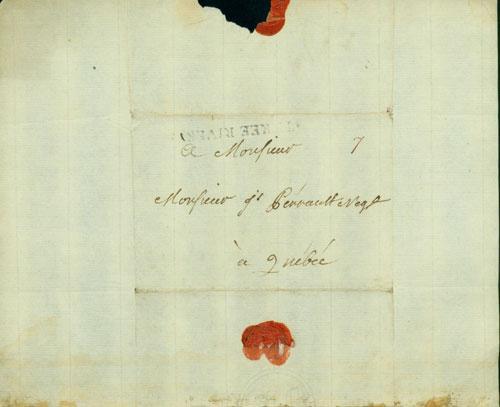 THREE RIVERS
A Monsieur 7
Monsieur Js Perrault Negt
à Québec